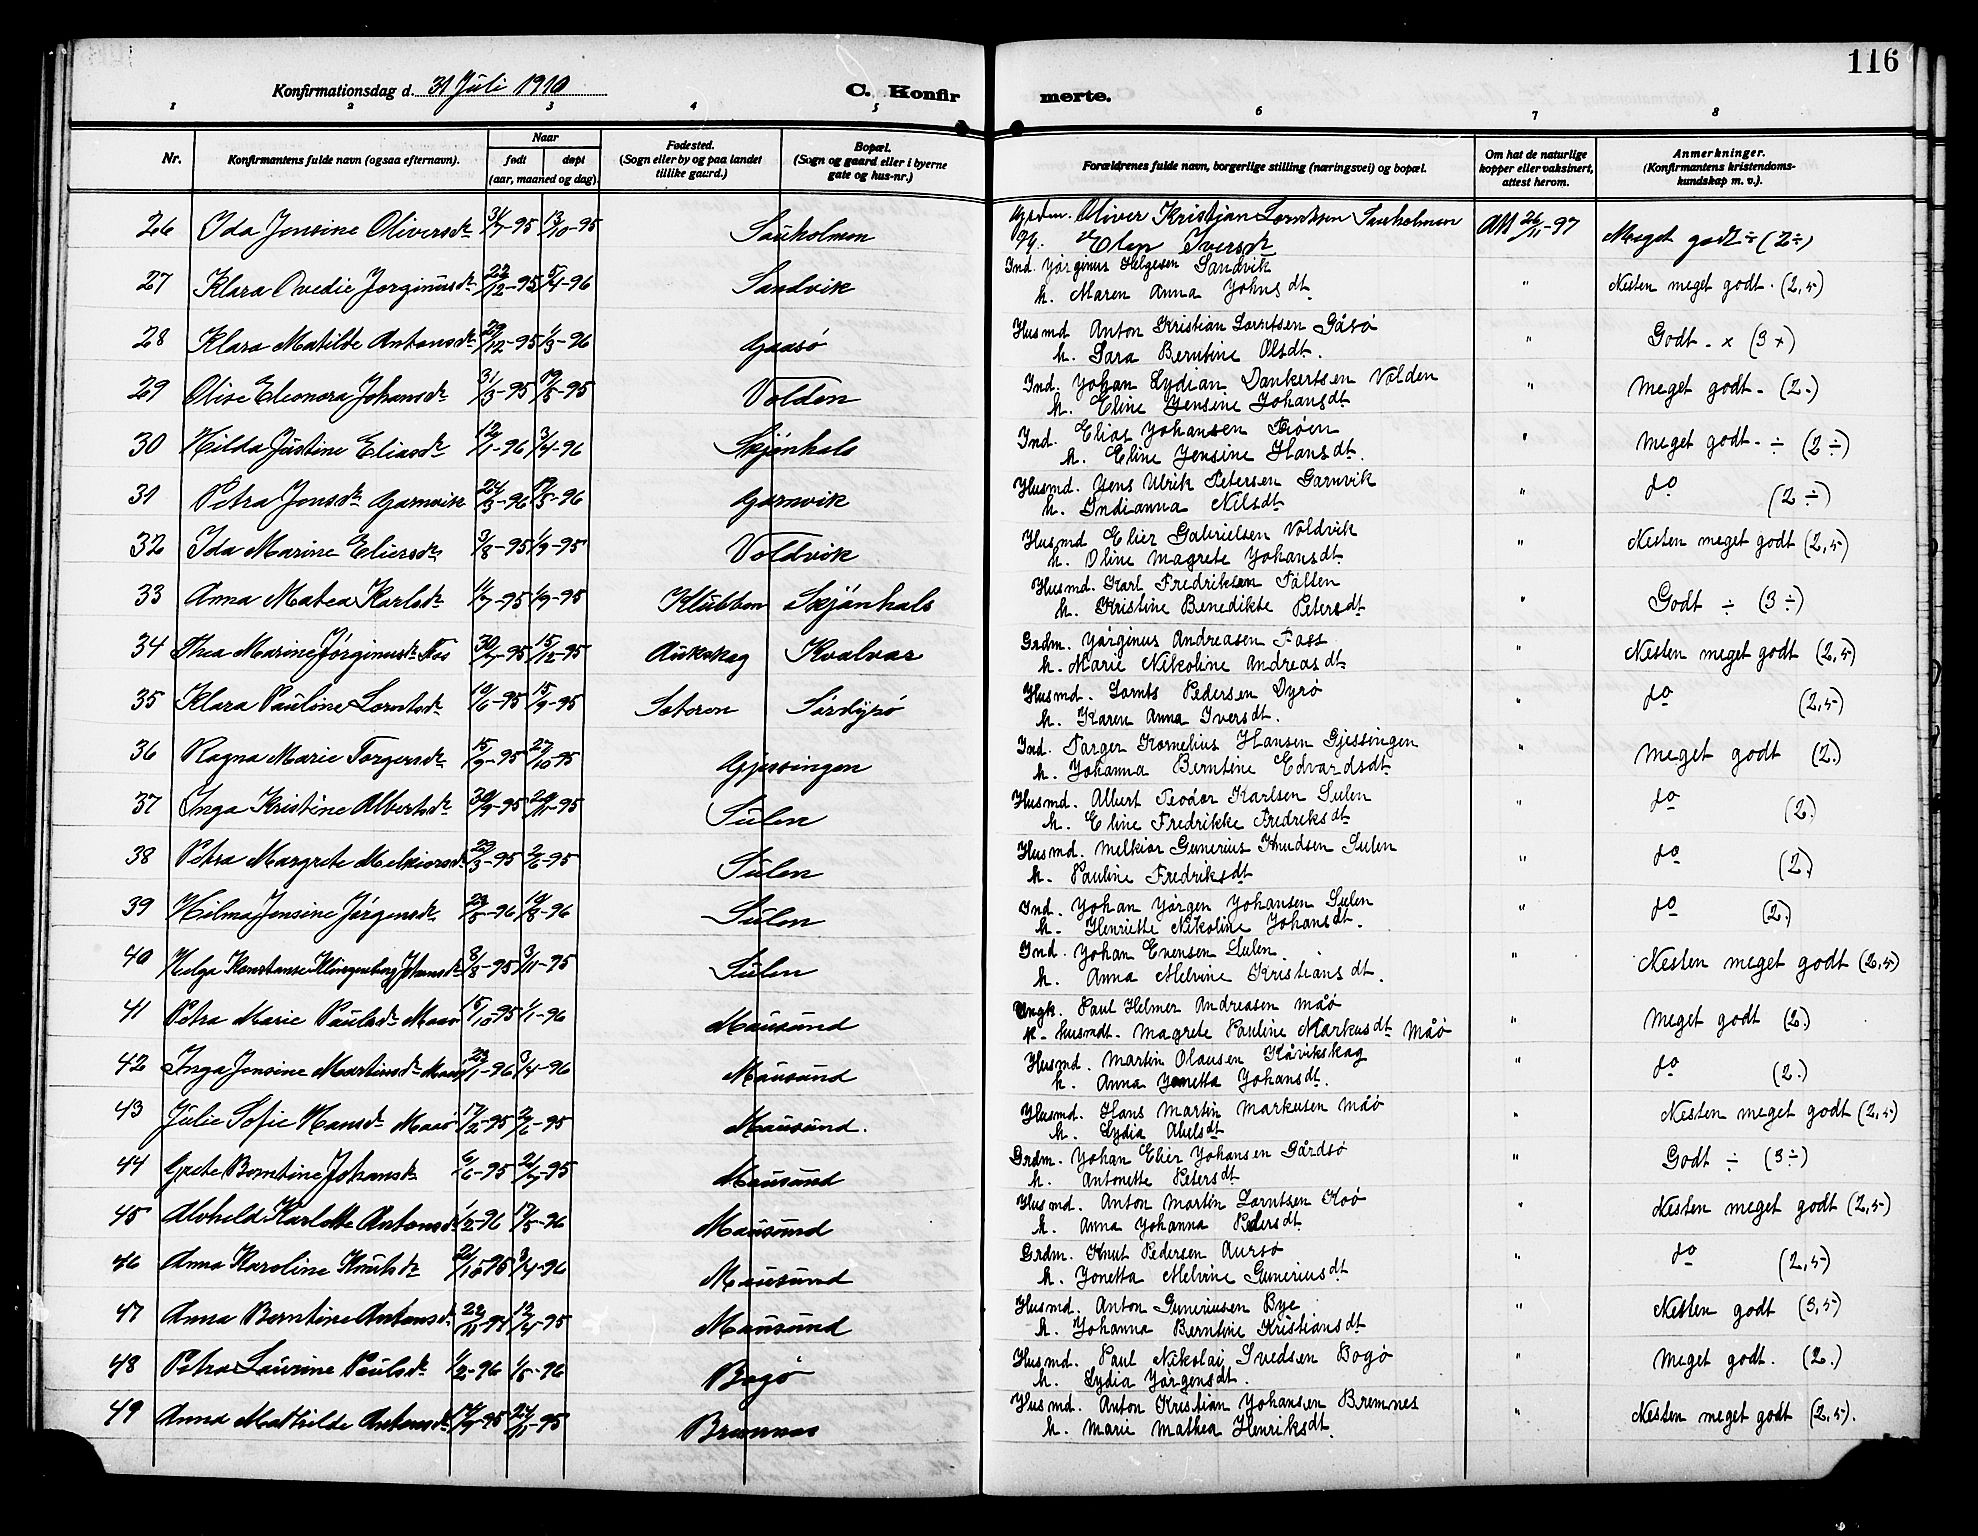 116
Konfirmationsdag d. 31 Juli 1910
C. Konfirmerte.
1 2 3 4 5 6 7 8
Nr.
Konfirmantens fulde navn (ogsaa efternavn).
Naar
født døpt
(aar, maaned og dag).
Fødested.
(Sogn eller by og paa landet
tillike gaard.)
Bopæl.
(Sogn og gaard eller i byerne
gate og hus-nr.)
Forældrenes fulde navn, borgerlige stilling (næringsvei) og bopæl.
Om hat de naturlige
kopper eller vaksinert,
attest herom.
Anmerkninger.
(Konfirmantens kristendoms-
kundskap m. v.).
26 Ida Jensine Oliversdtr 31/7-95 13/10-95 Sauholmen Oliver Kristjan Lorntsen Sauholmen 26/11-97 Meget godt ÷ (2÷)
Elen Iversdt
27 Klara Ovedie Jørginusdtr 22/12-95 5/4-96 Sandvik Ind. Yørginus Helgesen Sandvik " Nesten meget godt. (2,5)
h. Maren Anna Yohnsdt.
28 Klara Matilde Antonsdtr 29/12-95 1/3-96 Gaasø Husmd Anton Kristian Lorntsen Gåsø " Godt - x (3+)
h. Sara Berntine Olsdt.
29 Olise Eleonora Johansdtr 31/3-95 19/5-95 Volden Ind. Yohan Lydian Dankertsen Volden " Meget godt - (2.)
h. Eline Yensine Johansdt.
30 Hilda Justine Eliasdtr 12/1-96 3/4-96 Skjønhals Ind. Elias Yohansen Trøen " Meget godt - ÷ (2÷)
h. Eline Yensine Hansdt.
31 Petra Jensdtr Garnvik 24/3-96 17/5-96 Garnvik Husmd. Yens Ulrik Petersen Garnvik " do (2÷)
h. Indianna Nilsdt.
32 Ida Marine Eliersdtr 3/8-95 1/9-95 Voldvik Husmd Elier Gabrielsen Voldvik " Nesten meget godt (2,5)
h. Oline Magrete Yohansdt.
33 Anna Matea Karlsdtr 4/7-95 1/9-95 Klubben Skjønhals Husmd. Karl Fredriksen Tålten " Godt ÷ (3÷)
h. Kristine Benedikte Petersdt
34 Thea Marine Jørginusdtr Fos 30/7-95 15/12-95 Aukskag Kvalvær Grdm. Yørginus Andreasen Foss " Nesten meget godt (2,5)
h. Marie Nikoline Andreasdt.
35 Klara Pauline Lorntsdtr 19/6-95 15/9-95 Seteren Sørdyrø Husmd. Lornts Pedersen Dyrø " do (2,5)
h. Karen Anna Iversdt.
36 Ragna Marie Torgersdtr 15/9-95 27/10-95 Gjessingen Ind. Targer Kornelius Hansen Gjessingen " Meget godt (2.)
h. Yohanna Berntine Edvardsdt.
37 Inga Kristine Albertsdtr 30/9-95 24/11-95 Sulen Husmd. Albert Teodor Karlsen Sulen " do (2.)
h. Eline Fredrikke Fredriksdt
38 Petra Margrete Melkiorsdtr 29/3-95 2/6-95 Sulen Husmd. Melkior Gunerius Knudsen Sulen " do (2.)
h. Pauline Fredriksdt
39 Hilma Jensine Jørgensdtr 23/5-96 19/8-96 Sulen Ind. Yohan Yørgen Yohansen Sulen " do (2.)
h. Henriette Nikoline Yohansdt.
40 Helga Konstanse Klingenberg Johansdtr 8/8-95 3/11-95 Sulen Ind. Yohan Evensen Sulen. " Nesten meget godt (2,5)
h. Anna Melvine Kristiansdt.
41 Petra Marie Paulsdtr Maaø 15/10-95 1/1-96 Mausund Ungk. Paul Helmer Andreasen Måø " Meget godt (2.)
k. husmdt. Magrete Pauline Markusdt Måø
42 Inga Jensine Martinusdtr 23/1-96 3/4-96 Mausund Husmd. Martin Olausen Kåvikskag " do (2.)
h. Anna Yonetta Yohansdt.
43 Julie Sofie Hansdtr Maaø 17/2-95 2/6-95 Mausund. Husmd. Hans Martin Markusen Måø " Nesten meget godt (2,5)
h. Lydia Abelsdt
44 Grete Berntine Johansdtr 6/6-95 21/7-95 Mausund Grdm. Yohan Elier Yohansen Gårdsø " Godt ÷ (3÷)
h. Antonette Petersdt.
45 Alvheld Karlotte Antonsdtr 1/2-96 17/5-96 Mausund Husmd. Anton Martin Lorntsen Koø " Nesten meget godt (2,5)
h. Anna Yohanna Pedersdt.
46 Anna Karoline Knutsdtr 21/10-95 3/4-96 Mausund Grdm. Knut Pedersen Aursø " do (2,5)
h. Yonetta Melvine Guneriusdt
47 Anna Berntine Antonsdtr 22/11-94 12/4-95 Mausund Husmd. Anton Guneriusen Bye " Nesten godt (3,5)
h. Yohanna Berntine Kristiansdt
48 Petra Laurine Paulsdtr 1/2-96 1/5-96 Bogø Husmd. Paul Nikolai Svedsen Bogø " Meget godt. (2.)
h. Lydia Yørgensdt.
49 Anna Mathilde Antonsdtr 14/9-95 24/11-95 Bremnes Husmd. Anton Kristian Yohansen Bremnes " Nesten meget godt (2,5).
h. Marie Mathea Henriksdt.